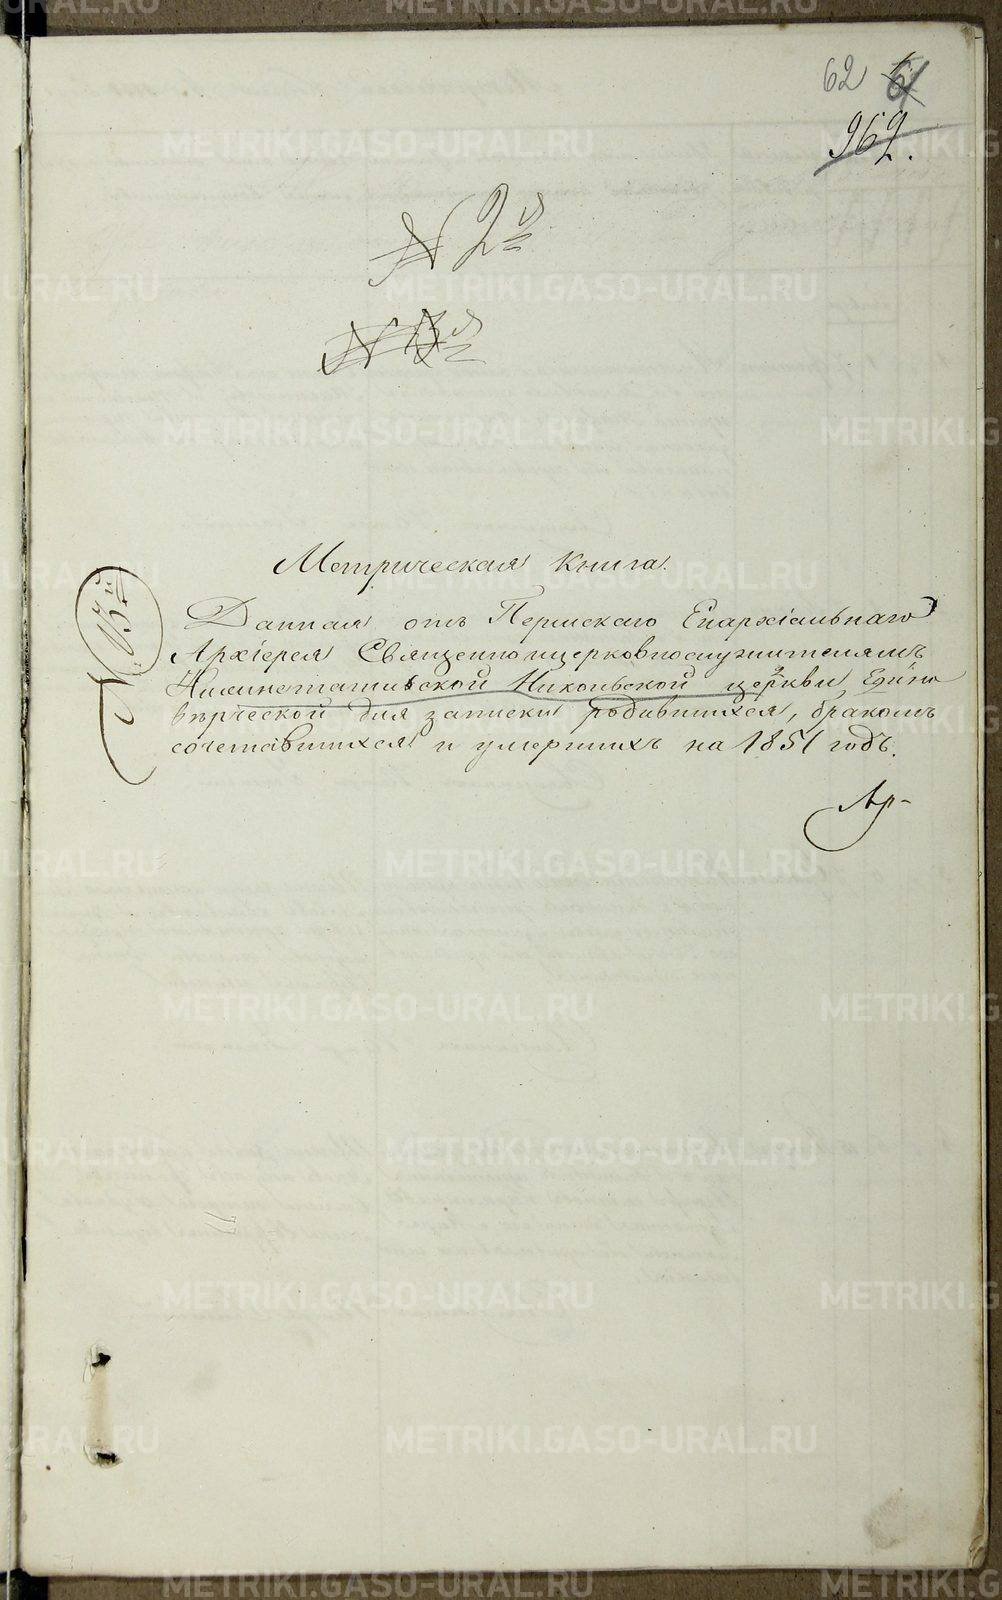 62 61
962.
№ 2й
№ 13й
Метрическая Книга.
№ 13й
Данная отъ Пермскаго Епархіальнаго
Архіерея Священноицерковнослужителямъ
Никольской церкви, Едино
върческой для записки родившихся, бракомъ
сочетавшихся и умершихъ на 1851 годъ.
Ар-
METRIKI.GASO-URAL.RU